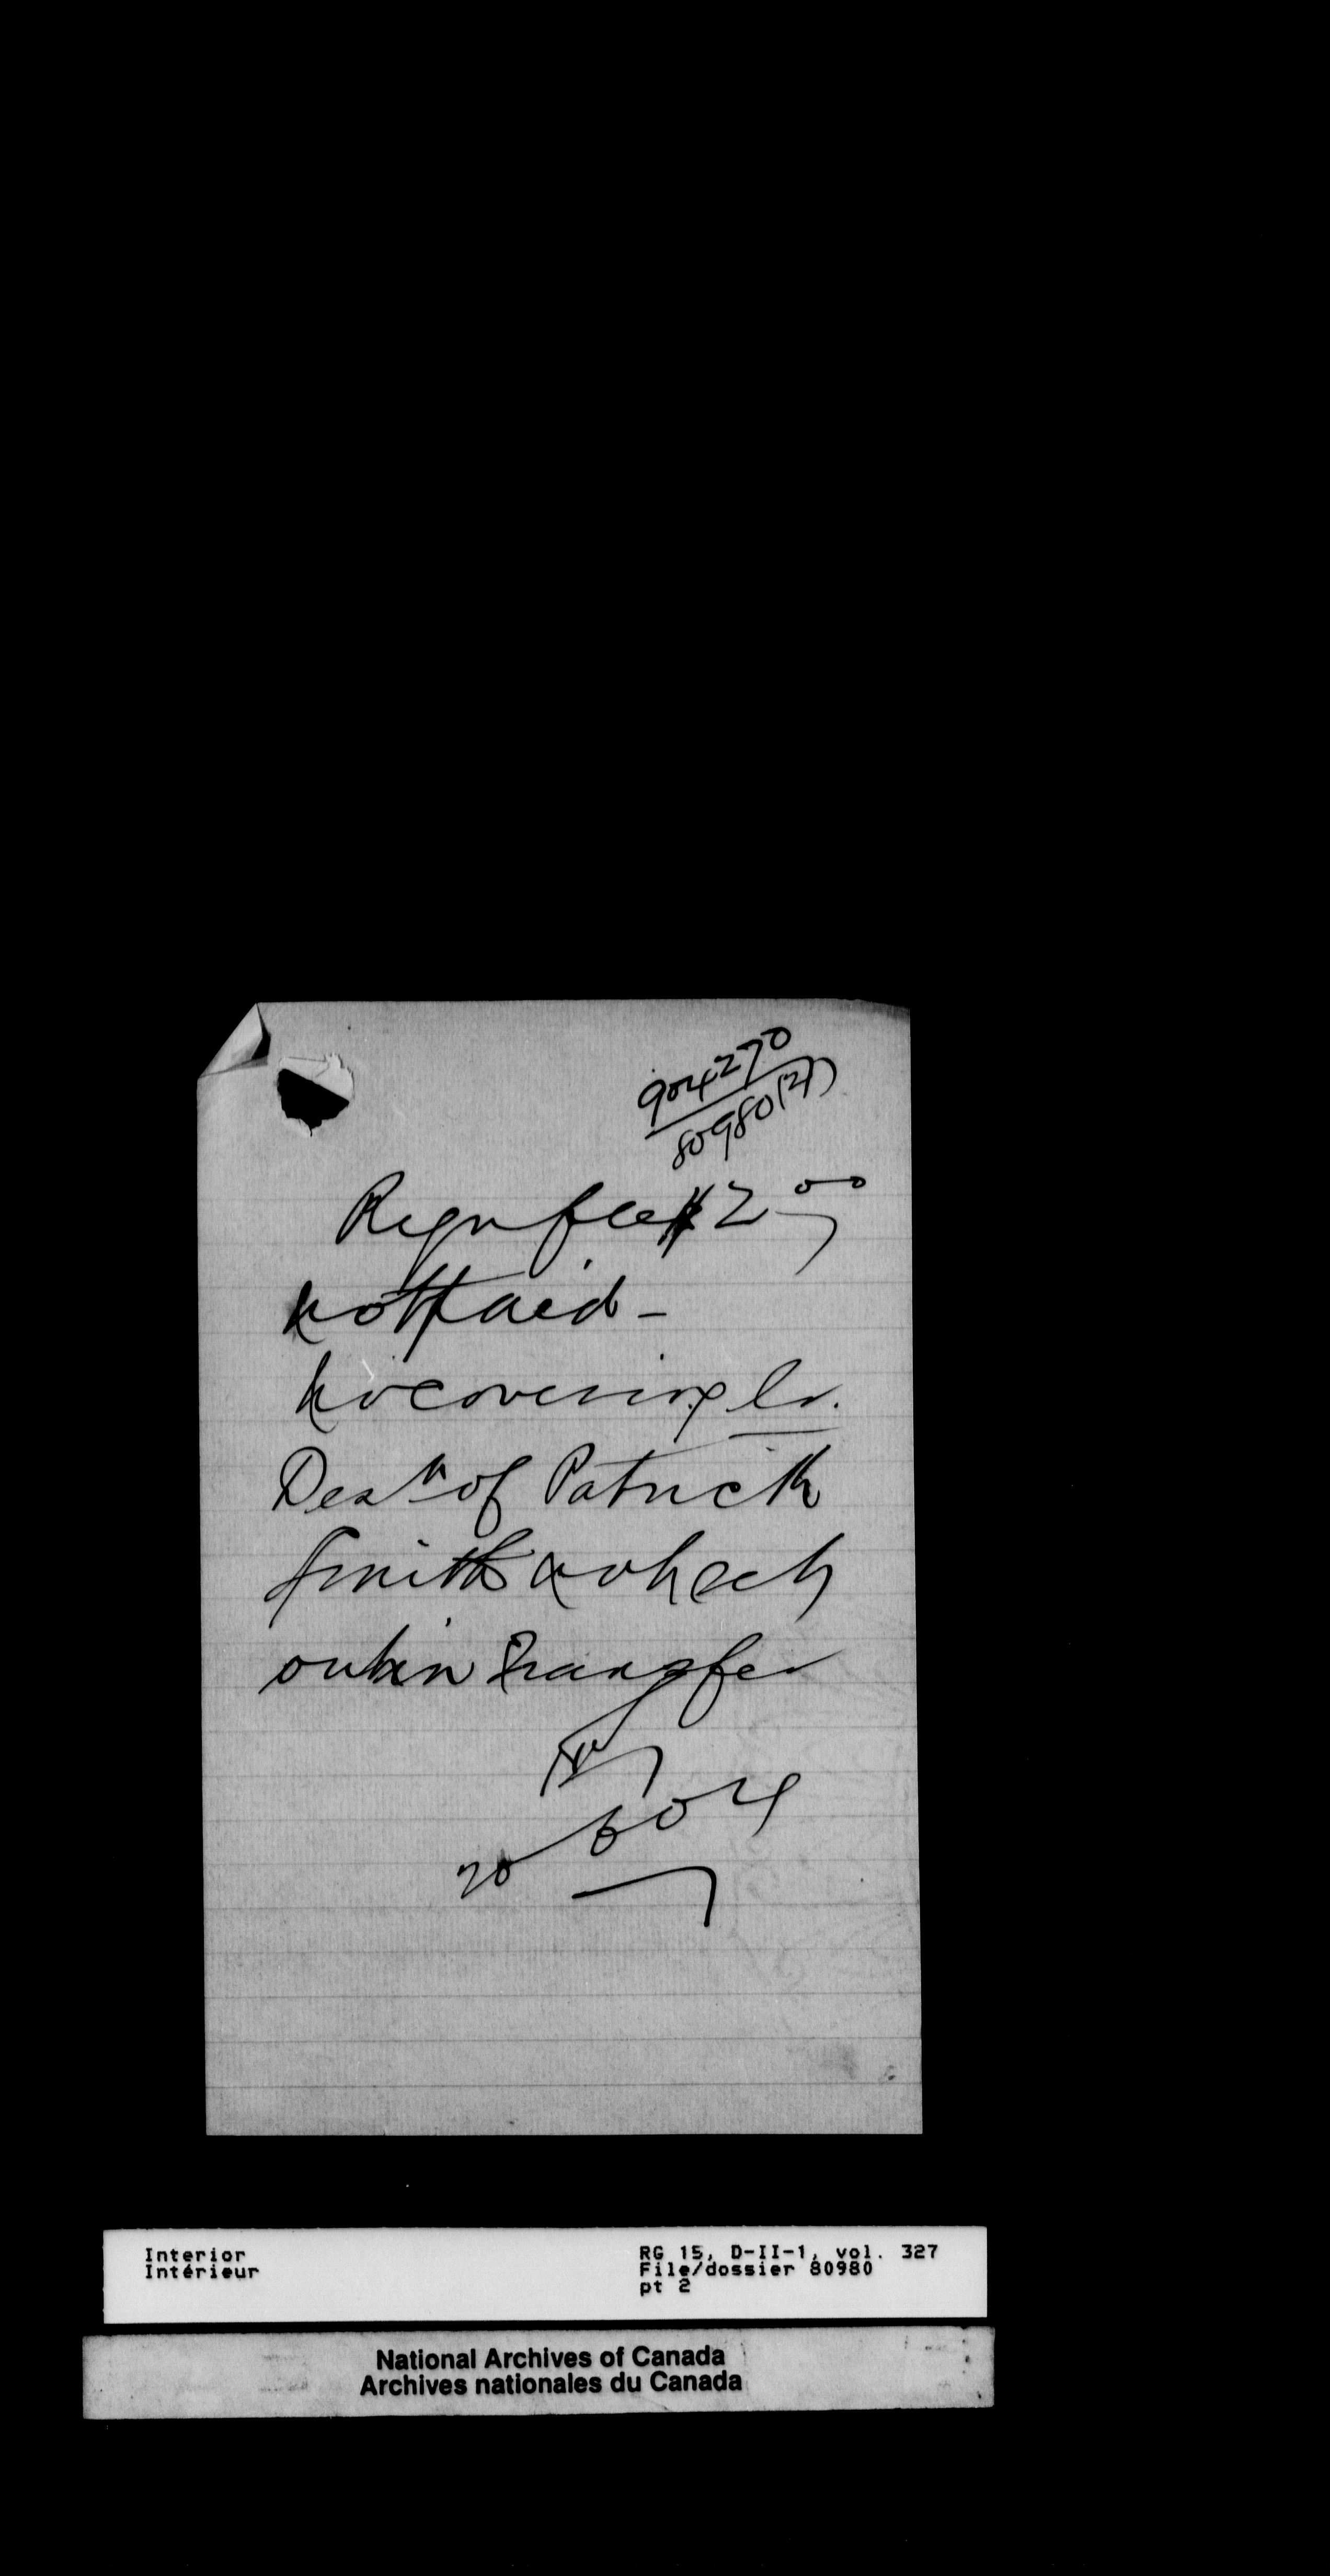 904270
80980(2)
Regn fee $2 00
not paid -
No covering lr.
Desn of Patrick
Smith & which
out in Transfer
20 6 04
Interior
Intérieur
RG 15, D-II-1, vol. 327
File/dossier 80980
pt 2
National Archives of Canada
Archives nationales du Canada